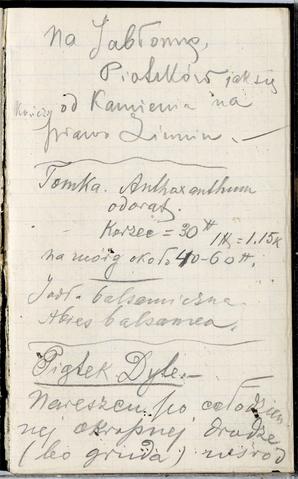 Na Jabłonnę,
Piotrków jak się
kończy
od Kamienia na
prawo
Tomka. Anthoxanthum
odorat.
Korzec = 30 ℔
1 ℔ = 1.15 K
na morg około 40-60 ℔.
Jodła balsamiczna
Abies balsamea.
Piątek Dyle.—
Nareszcie po całodzien
nej okropnej drodze
(bo gruda) wśród